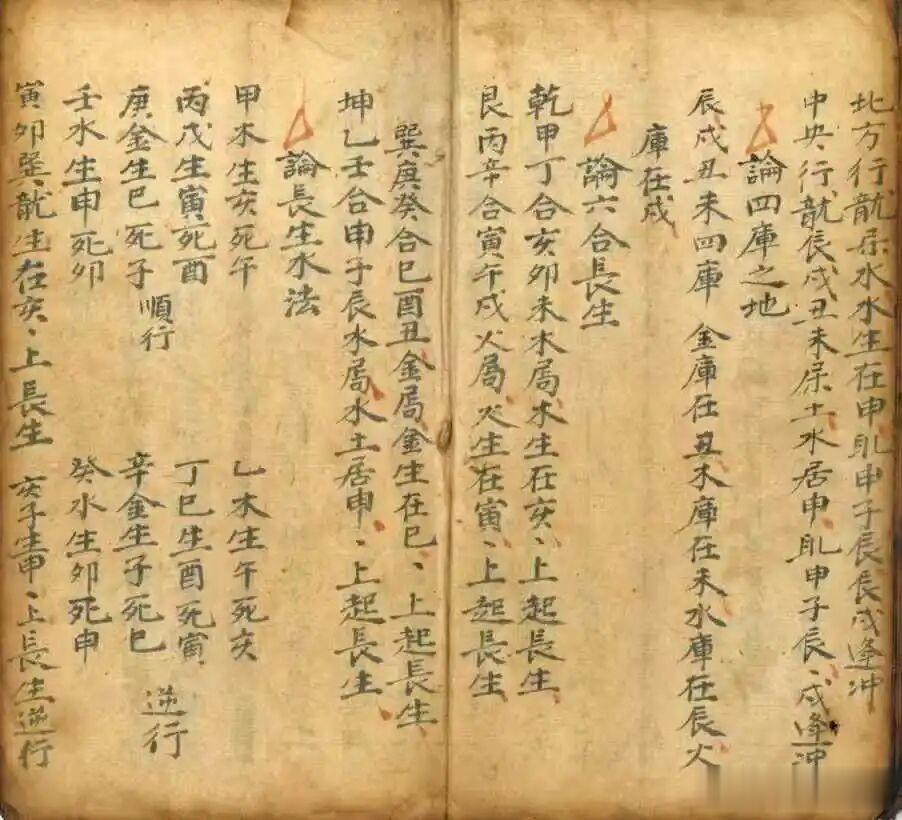 北方行龍属水水生在申申子辰辰戌逢冲
中央行龍辰戌丑未属土水居申申子辰、戌逢冲
論四庫之地
辰戌丑未四庫 金庫在丑木庫在未水庫在辰火
庫在戌
論六合長生
乾甲丁合亥卯未木局木生在亥、上起長生
艮丙辛合寅午戌火局火生在寅、上起長生
巽庚癸合巳酉丑金局金生在巳、上起長生
坤乙壬合申子辰水局水土居申、上起長生
論長生水法
甲木生亥死午 乙木生午死亥
丙戊生寅死酉 丁巳生酉死寅
庚金生巳死子 辛金生子死巳
順行 逆行
壬水生申死卯 癸水生卯死申
寅卯巽龍生在亥、上長生 亥子生申、上長生逆行